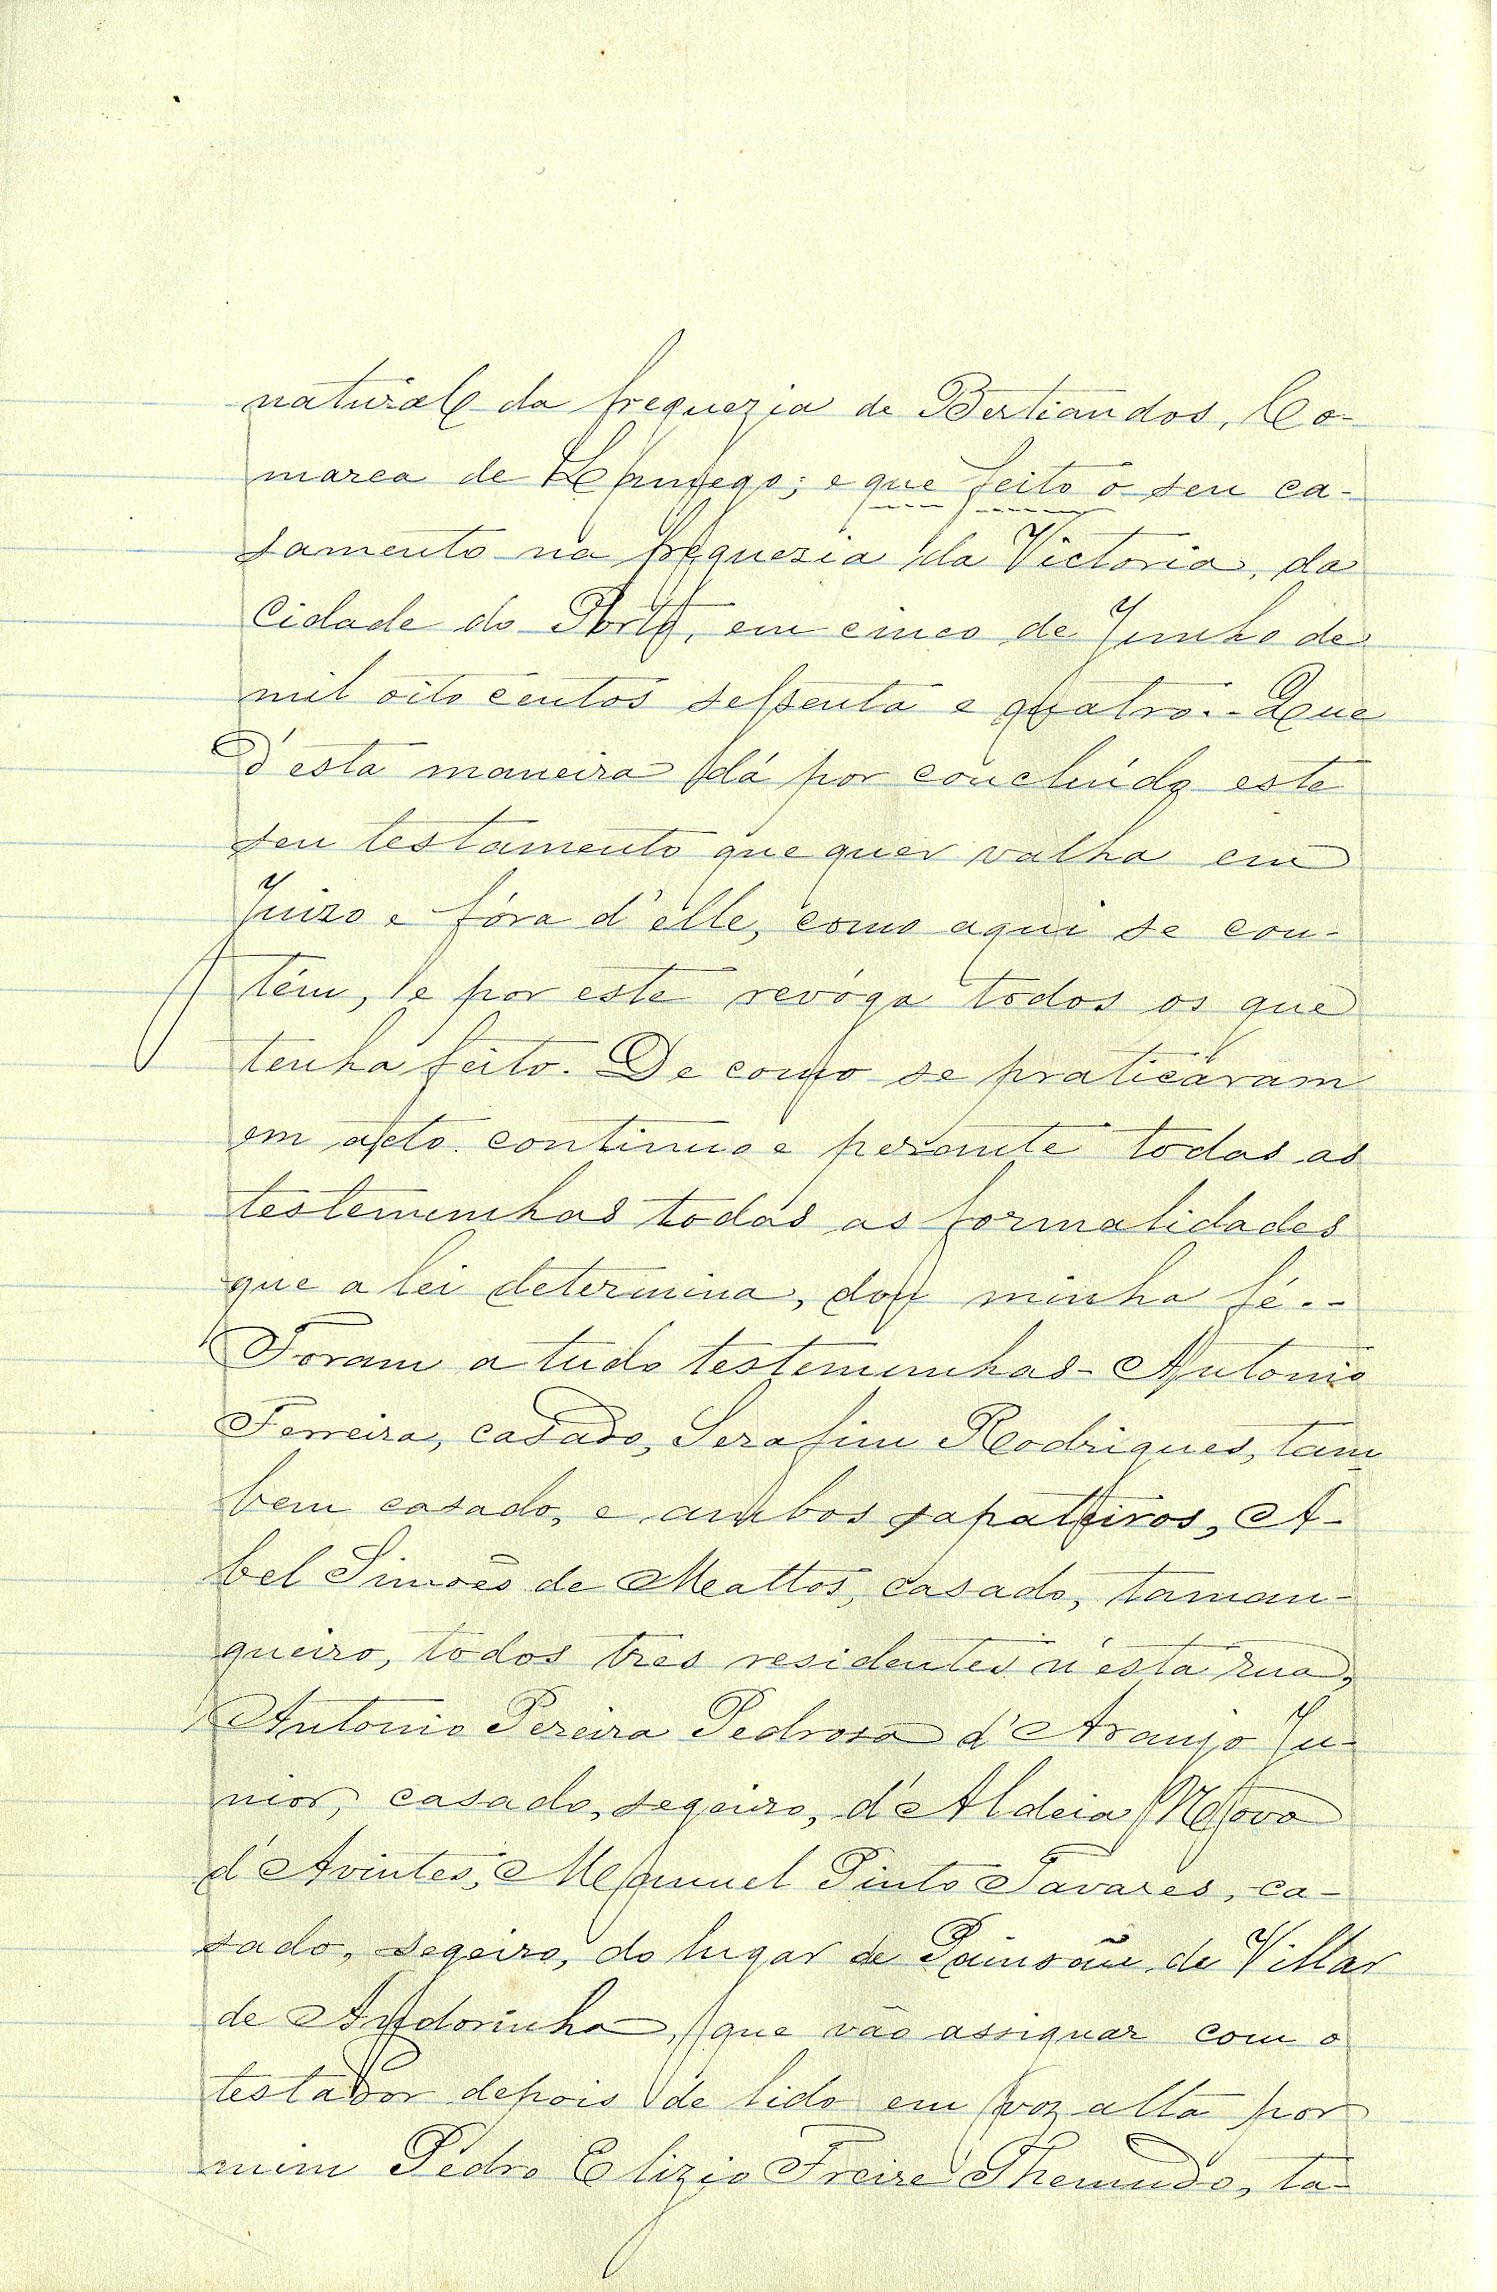 natural da freguezia de Bertiandos, Co-
marca de Lamego; e que feito o seu ca-
samento na freguesia da Victoria, da
Cidade do Porto, em cinco de Junho de
mil oito centos sessenta e quatro.- Que
d'esta maneira dá por concluido este
seu testamento que quer valha em
Juizo e fóra d'elle, como aqui se con-
tém, e por este revóga todos os que
tenha feito. De como se praticáram
em acto continuo e perante todas as
testemunhas todas as formalidades
que a lei determina, dou minha fé.-
Foram a tudo testemunhas - Antonio
Ferreira, casado, Serafim Rodrigues, tam
bem casado, e ambos sapateiros, A-
bel Simões de Mattos, casado, taman-
queiro, todos tres residentes n'esta rua,
Antonio Pereira Pedrosa d'Araujo Ju-
nior, casado, segeiro, d'Aldeia Nova
d'Avintes, Manuel Pinto Tavares, ca-
sado, segeiro, do lugar de de Villar
de Andorinho, que vão assignar com o
testador depois de lido em voz alta por
mim Pedro Elizio Freire Themudo, ta-